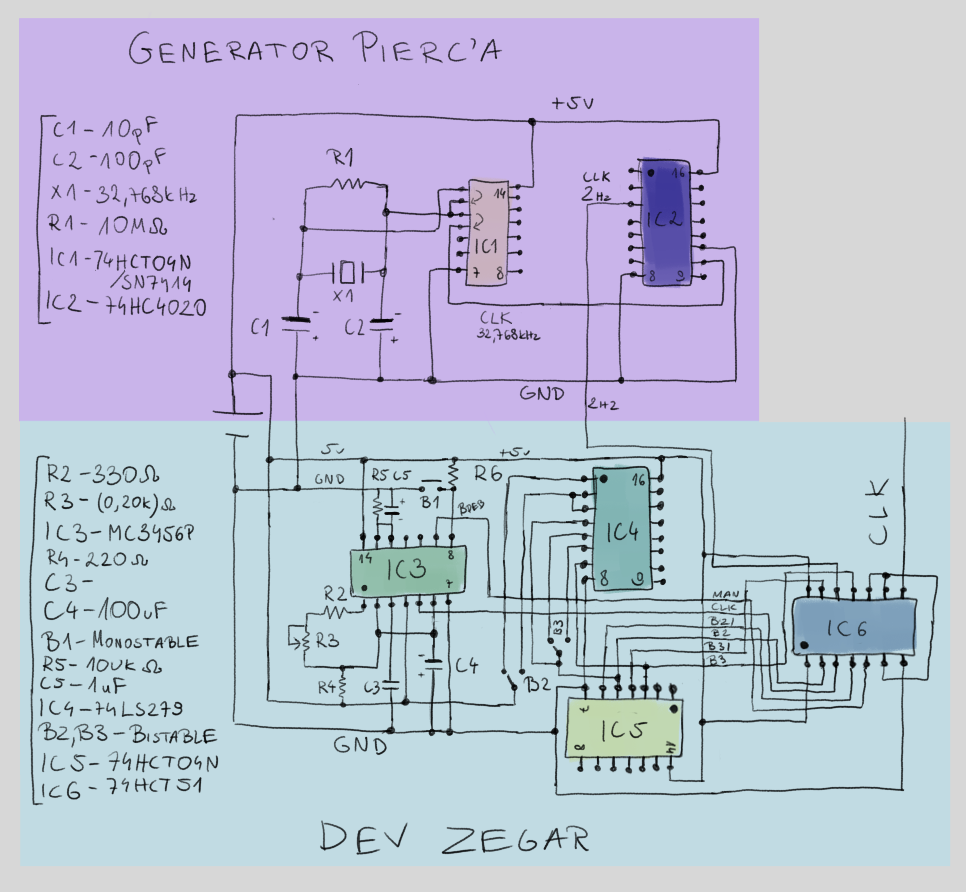 GENERATOR PIERC'A
C1-10pF
C2-100pF
X1-32,768kHz
R1-10MΩ
IC1-74HCT04N
/SN7414
IC2-74HC4020
+5V
R1
X1
C1
-
+
C2
-
+
14
IC1
7 8
CLK
32,768kHz
CLK
2Hz
16
IC2
8 9
GND
2Hz
R2-330Ω
R3-(0,20k)Ω
IC3-MC3456P
R4-220Ω
C3-
C4-100uF
B1-MONOSTABLE
R5-10UKΩ
C5-1uF
IC4-74LS279
B2,B3-BISTABLE
IC5-74HCT04N
IC6-74HCT51
5v
+5v
GND
R5 C5
+
-
B1
R6
14 8
IC3
7
R2
R3
R4
C3
-
+
C4
GND
16
IC4
8 9
B3
B2
MAN
CLK
B2/
B2
B3/
B3
7
IC5
8 14
IC6
CLK
DEV ZEGAR